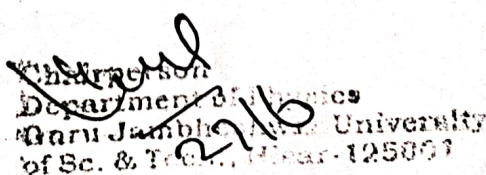 Chairperson
Department of Physics
Guru Jambheshwar University
of Sc. & Tech., Hisar-125001
27/6